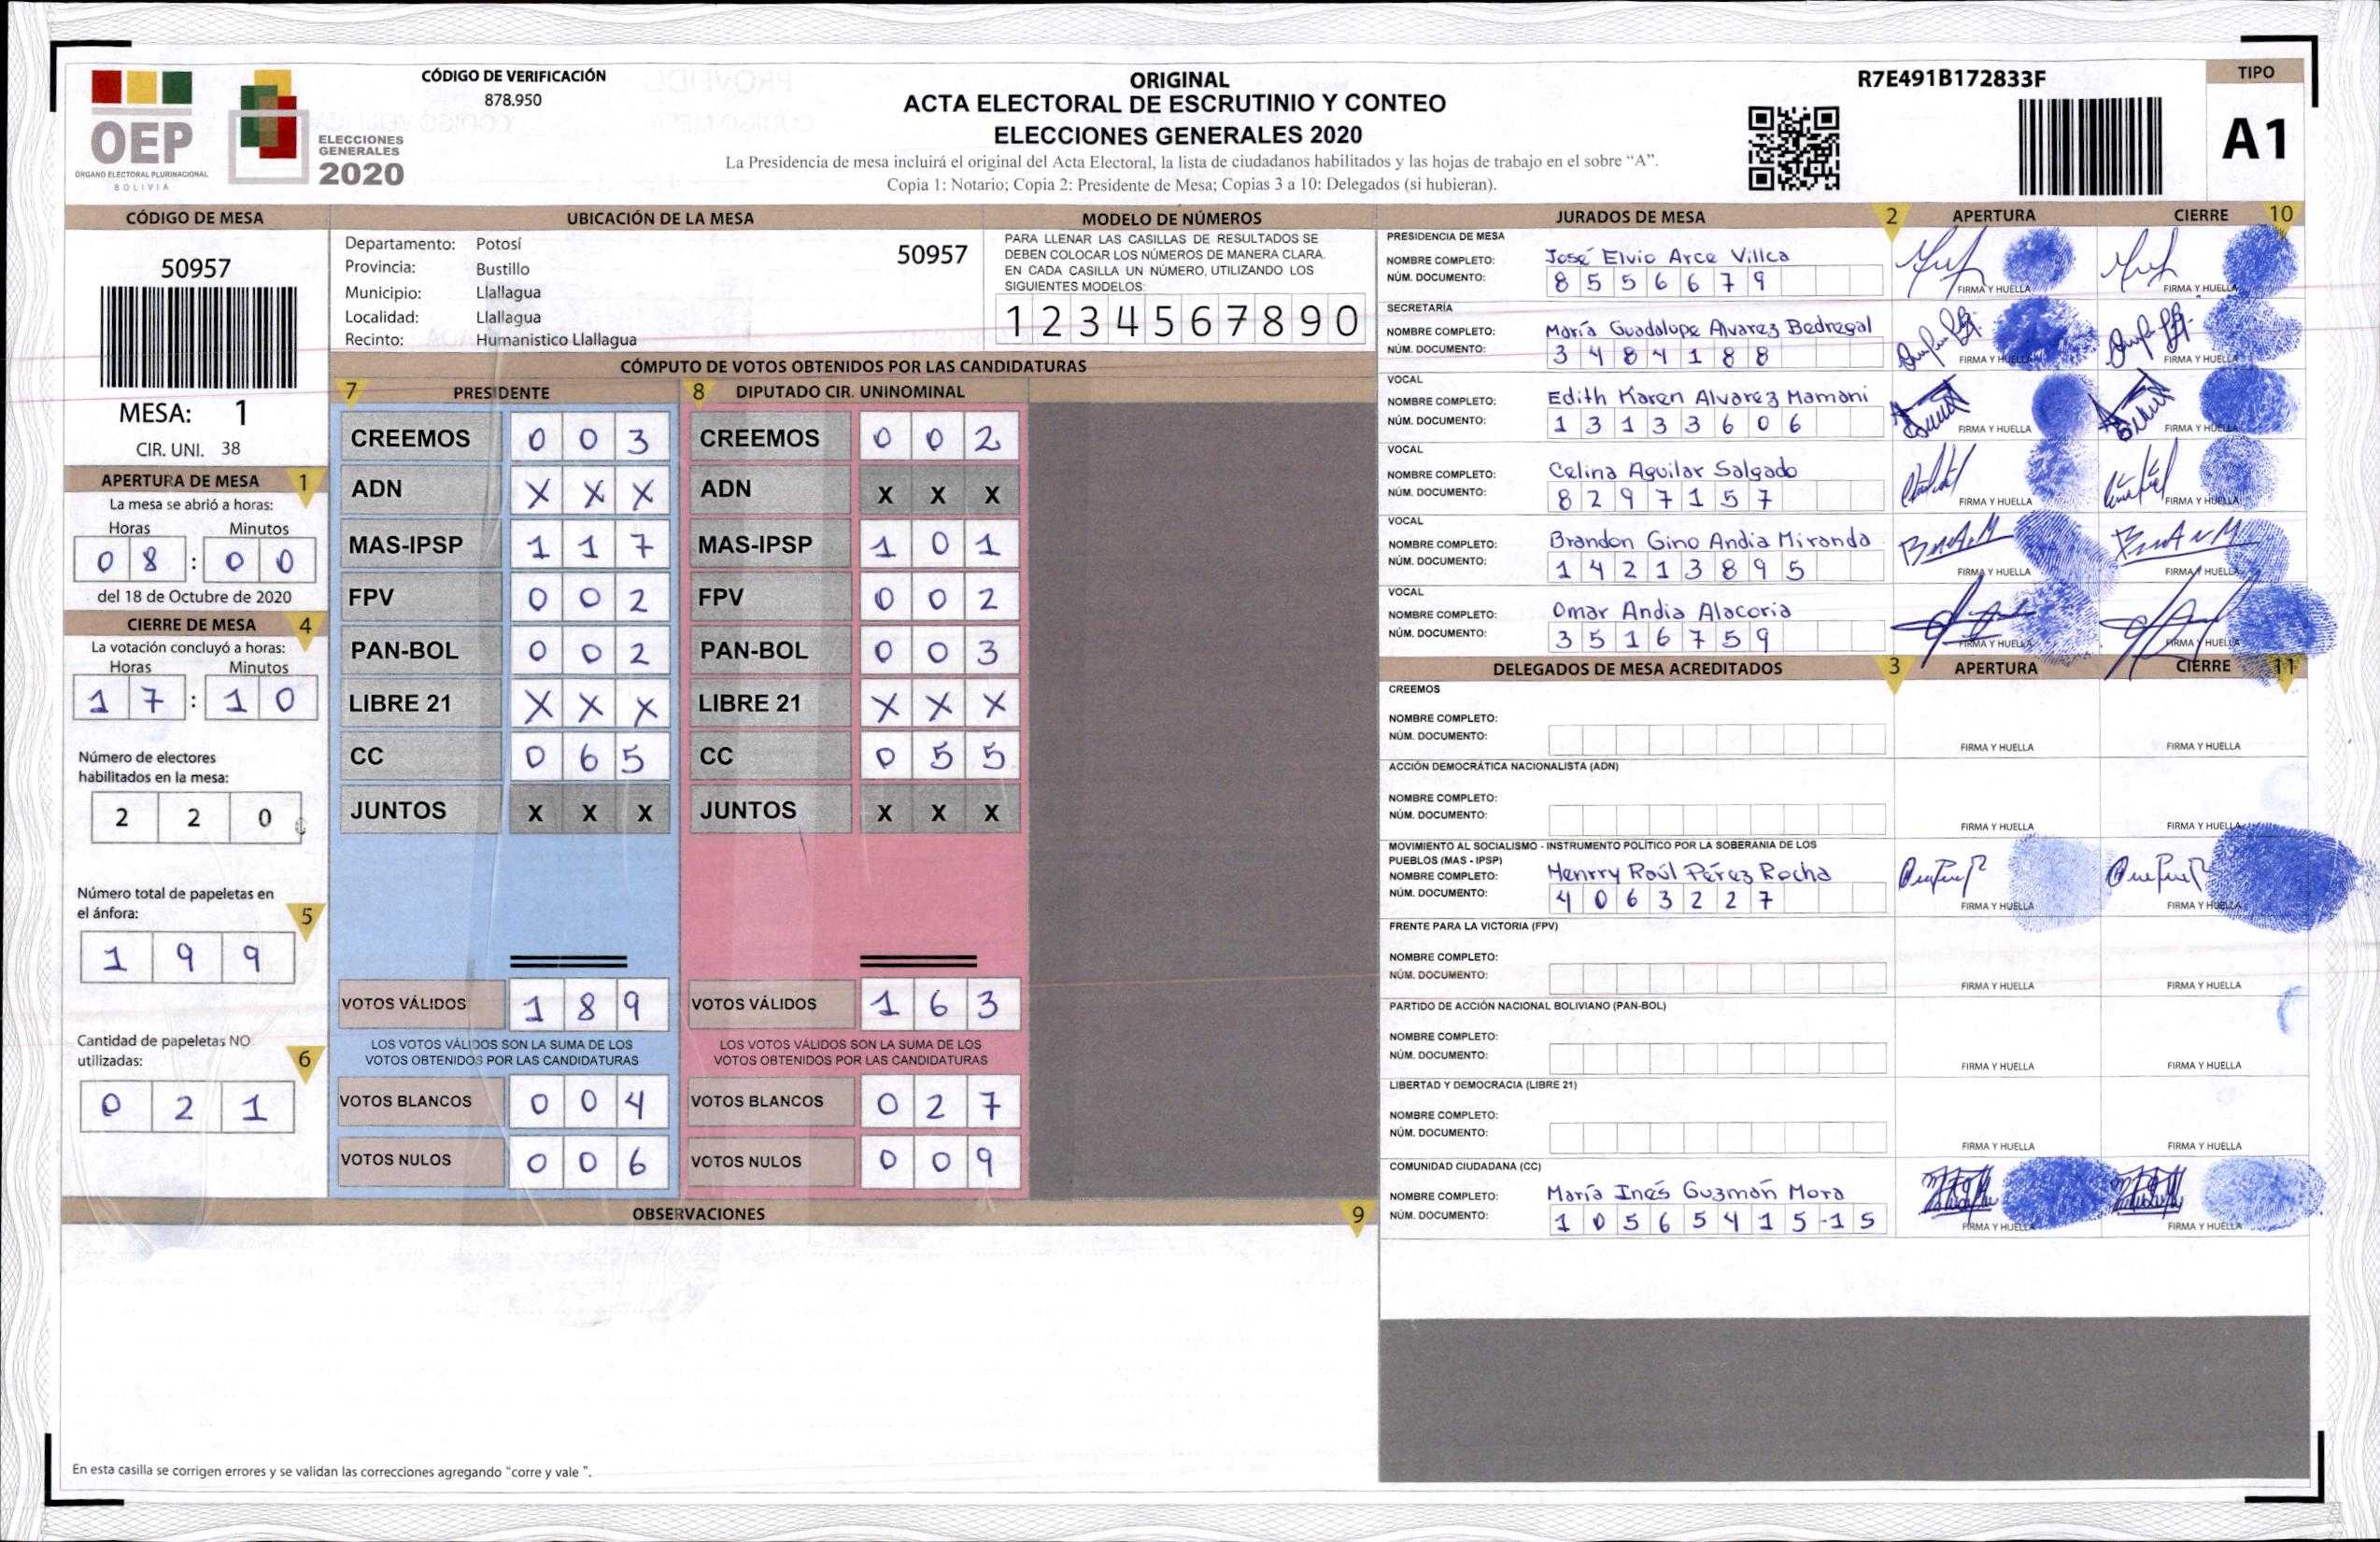 OEP
ÓRGANO ELECTORAL PLURINACIONAL
BOLIVIA
ELECCIONES
GENERALES
2020
CÓDIGO DE VERIFICACIÓN
878.950
ORIGINAL
ACTA ELECTORAL DE ESCRUTINIO Y CONTEO
ELECCIONES GENERALES 2020
La Presidencia de mesa incluirá el original del Acta Electoral, la lista de ciudadanos habilitados y las hojas de trabajo en el sobre “A”.
Copia 1: Notario; Copia 2: Presidente de Mesa; Copias 3 a 10: Delegados (si hubieran).
R7E491B172833F
TIPO
A1
CÓDIGO DE MESA
50957
MESA: 1
CIR. UNI. 38
APERTURA DE MESA 1
La mesa se abrió a horas:
Horas Minutos
0 8 : 0 0
del 18 de Octubre de 2020
CIERRE DE MESA 4
La votación concluyó a horas:
Horas Minutos
1 7 : 1 0
Número de electores
habilitados en la mesa:
2 2 0
Número total de papeletas en
el ánfora:
5
1 9 9
Cantidad de papeletas NO
utilizadas:
6
0 2 1
UBICACIÓN DE LA MESA
Departamento: Potosí
50957
Provincia: Bustillo
Municipio: Llallagua
Localidad: Llallagua
Recinto: Humanistico Llallagua
MODELO DE NÚMEROS
PARA LLENAR LAS CASILLAS DE RESULTADOS SE
DEBEN COLOCAR LOS NÚMEROS DE MANERA CLARA.
EN CADA CASILLA UN NÚMERO, UTILIZANDO LOS
SIGUIENTES MODELOS:
1 2 3 4 5 6 7 8 9 0
CÓMPUTO DE VOTOS OBTENIDOS POR LAS CANDIDATURAS
7 PRESIDENTE 8 DIPUTADO CIR. UNINOMINAL
CREEMOS 0 0 3 CREEMOS 0 0 2
ADN X X X ADN X X X
MAS-IPSP 1 1 7 MAS-IPSP 1 0 1
FPV 0 0 2 FPV 0 0 2
PAN-BOL 0 0 2 PAN-BOL 0 0 3
LIBRE 21 X X X LIBRE 21 X X X
CC 0 6 5 CC 0 5 5
JUNTOS X X X JUNTOS X X X
VOTOS VÁLIDOS 1 8 9 VOTOS VÁLIDOS 1 6 3
LOS VOTOS VÁLIDOS SON LA SUMA DE LOS LOS VOTOS VÁLIDOS SON LA SUMA DE LOS
VOTOS OBTENIDOS POR LAS CANDIDATURAS VOTOS OBTENIDOS POR LAS CANDIDATURAS
VOTOS BLANCOS 0 0 4 VOTOS BLANCOS 0 2 7
VOTOS NULOS 0 0 6 VOTOS NULOS 0 0 9
OBSERVACIONES 9
En esta casilla se corrigen errores y se validan las correcciones agregando “corre y vale ”.
JURADOS DE MESA 2 APERTURA CIERRE 10
PRESIDENCIA DE MESA
NOMBRE COMPLETO: José Elvio Arce Villca
NÚM. DOCUMENTO: 8 5 5 6 6 7 9
FIRMA Y HUELLA FIRMA Y HUELLA
SECRETARÍA
NOMBRE COMPLETO: María Guadalupe Alvarez Bedregal
NÚM. DOCUMENTO: 3 4 8 4 1 8 8
FIRMA Y HUELLA FIRMA Y HUELLA
VOCAL
NOMBRE COMPLETO: Edith Karen Alvarez Mamani
NÚM. DOCUMENTO: 1 3 1 3 3 6 0 6
FIRMA Y HUELLA FIRMA Y HUELLA
VOCAL
NOMBRE COMPLETO: Celina Aguilar Salgado
NÚM. DOCUMENTO: 8 2 9 7 1 5 7
FIRMA Y HUELLA FIRMA Y HUELLA
VOCAL
NOMBRE COMPLETO: Brandon Gino Andia Miranda
NÚM. DOCUMENTO: 1 4 2 1 3 8 9 5
FIRMA Y HUELLA FIRMA Y HUELLA
VOCAL
NOMBRE COMPLETO: Omar Andia Alacoria
NÚM. DOCUMENTO: 3 5 1 6 7 5 9
FIRMA Y HUELLA FIRMA Y HUELLA
DELEGADOS DE MESA ACREDITADOS 3 APERTURA CIERRE 11
CREEMOS
NOMBRE COMPLETO:
NÚM. DOCUMENTO:
FIRMA Y HUELLA FIRMA Y HUELLA
ACCIÓN DEMOCRÁTICA NACIONALISTA (ADN)
NOMBRE COMPLETO:
NÚM. DOCUMENTO:
FIRMA Y HUELLA FIRMA Y HUELLA
MOVIMIENTO AL SOCIALISMO - INSTRUMENTO POLÍTICO POR LA SOBERANIA DE LOS
PUEBLOS (MAS - IPSP)
NOMBRE COMPLETO: Henrry Raúl Pérez Rocha
NÚM. DOCUMENTO: 4 0 6 3 2 2 7
FIRMA Y HUELLA FIRMA Y HUELLA
FRENTE PARA LA VICTORIA (FPV)
NOMBRE COMPLETO:
NÚM. DOCUMENTO:
FIRMA Y HUELLA FIRMA Y HUELLA
PARTIDO DE ACCIÓN NACIONAL BOLIVIANO (PAN-BOL)
NOMBRE COMPLETO:
NÚM. DOCUMENTO:
FIRMA Y HUELLA FIRMA Y HUELLA
LIBERTAD Y DEMOCRACIA (LIBRE 21)
NOMBRE COMPLETO:
NÚM. DOCUMENTO:
FIRMA Y HUELLA FIRMA Y HUELLA
COMUNIDAD CIUDADANA (CC)
NOMBRE COMPLETO: María Inés Guzmán Mora
NÚM. DOCUMENTO: 1 0 5 6 5 4 1 5 -1 5
FIRMA Y HUELLA FIRMA Y HUELLA